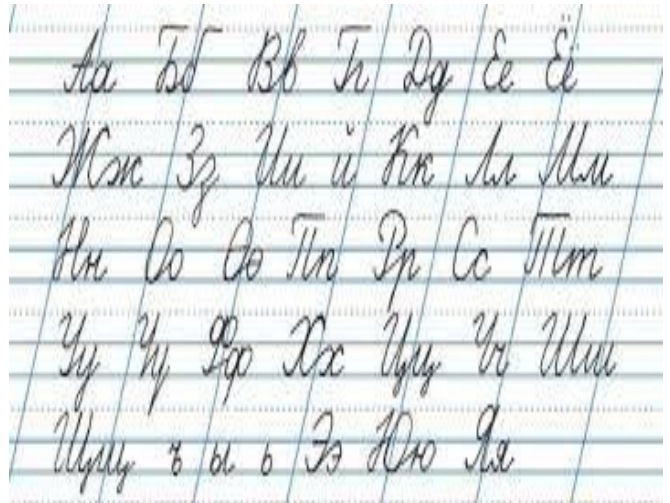 Аа Бб Вв Гг Дд Ее Ёё
Жж Зз Ии й Кк Лл Мм
Нн Оо Өө Пп Рр Сс Тт
Уу Үү Фф Хх Цц Чч Шш
Щщ ъ ы ь Ээ Юю Яя